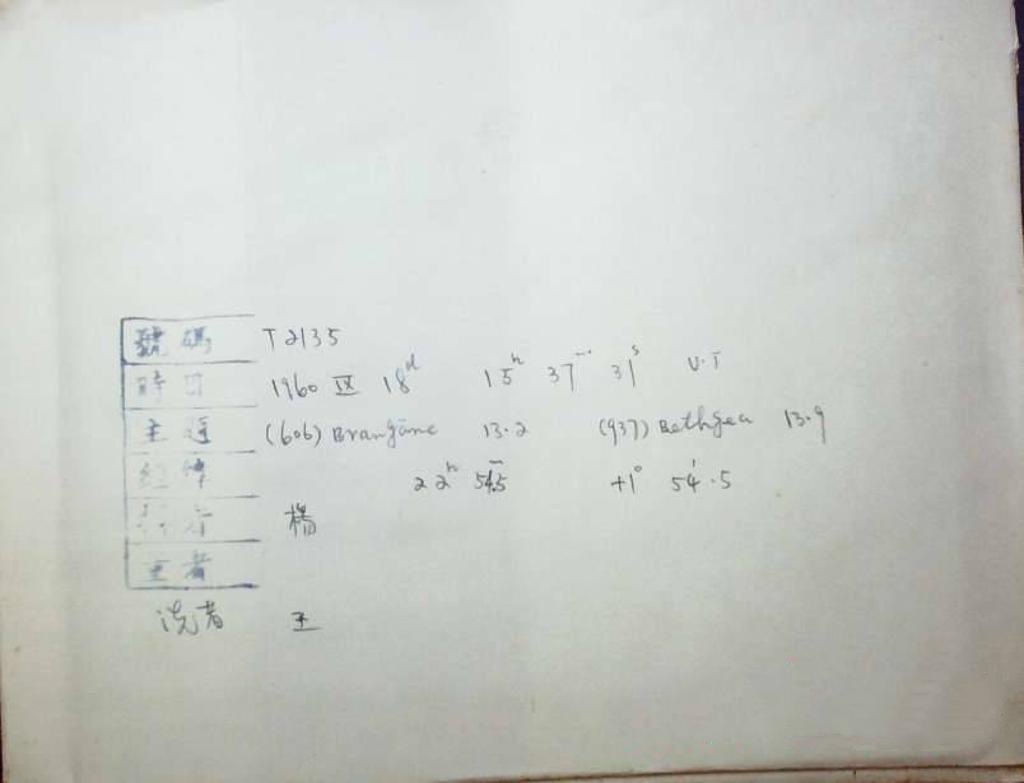 號碼 T2135
時日 1960 IX 18d 15h 37m 31s U.T
主 (606) Brangäne 13.2 (937) Bethgea 13.9
經緯 22h 54m.5 +1° 54'.5
者 楊
者
洗者 王